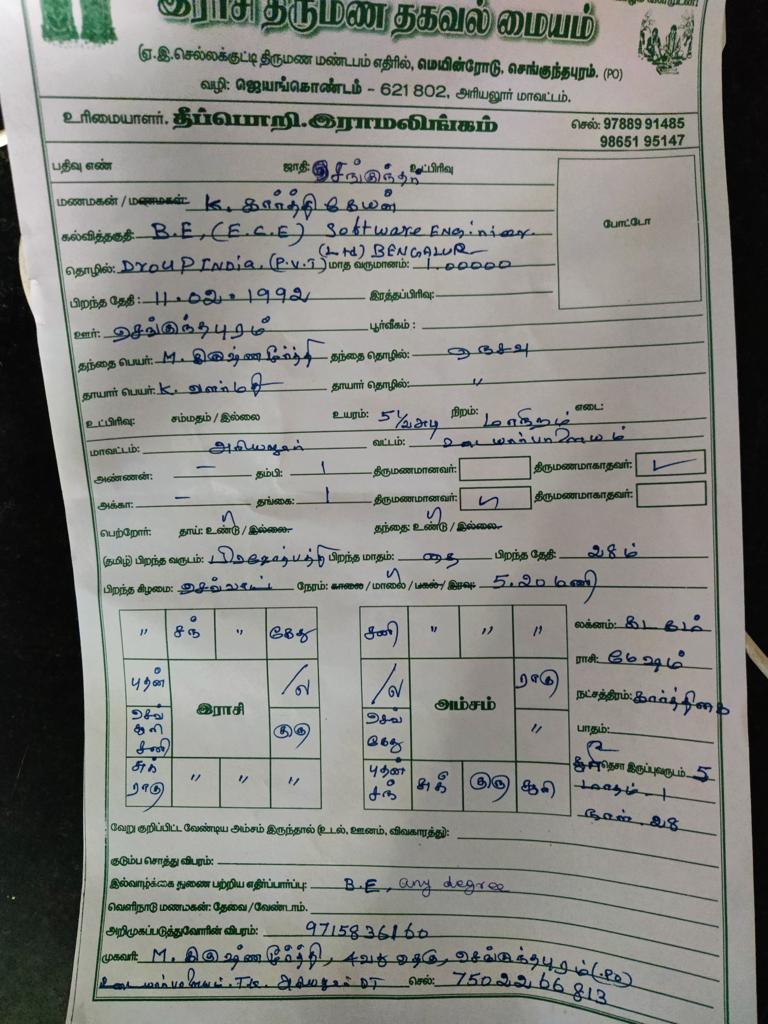 இராசி திருமண தகவல் மையம்
(ஏ.இ.செல்லக்குட்டி திருமண மண்டபம் எதிரில், மெயின்ரோடு, செங்குந்தபுரம். (PO)
வழி: ஜெயங்கொண்டம் - 621 802, அரியலூர் மாவட்டம்.
உரிமையாளர். தீப்பொறி.இராமலிங்கம் செல்: 97889 91485
98651 95147
பதிவு எண் ஜாதி: செங்குந்தர் உட்பிரிவு
மணமகன் / மணமகள்: K. கார்த்தி கேயன்
போட்டோ
கல்வித்தகுதி: B.E, (E.C.E) Software Enginier.
தொழில்: DroUP INDIA. (P.V.T) (Ltd) BENGALUR மாத வருமானம்: 1.00000
பிறந்த தேதி: 11.02.1992 இரத்தப்பிரிவு:
ஊர்: செங்குந்தபுரம் பூர்வீகம் :
தந்தை பெயர்: M. கிருஷ்ணமூர்த்தி தந்தை தொழில்: நெசவு
தாயார் பெயர்: K. வளர்மதி தாயார் தொழில்: "
உட்பிரிவு: சம்மதம் / இல்லை உயரம்: 5 1/2 அடி நிறம்: மாநிறம் எடை:
மாவட்டம்: அரியலூர் வட்டம்: உடையார்பாளையம்
அண்ணன்: - தம்பி: 1 திருமணமானவர்: திருமணமாகாதவர்: ✓
அக்கா: - தங்கை: 1 திருமணமானவர்: ✓ திருமணமாகாதவர்:
பெற்றோர்: தாய்: உண்டு / இல்லை. தந்தை: உண்டு / இல்லை.
(தமிழ்) பிறந்த வருடம்: பிரஜோற்பத்தி பிறந்த மாதம்: தை பிறந்த தேதி: 28ம்
பிறந்த கிழமை: செவ்வாய் நேரம்: காலை / மாலை / பகல் / இரவு: 5.20 மணி
" சந் " கேது சனி " " " லக்னம்: கடகம்
புதன் இராசி /ல /ல அம்சம் ராகு ராசி: மேஷம்
செவ் சூரி சனி குரு செவ் கேது " நட்சத்திரம்: கார்த்திகை
பாதம்:
சுக் ராகு " " " புதன் சந் சுக் குரு சூரி சூரி தெசா இருப்புவருடம் 5
மாதம். 1
நாள். 28
வேறு குறிப்பிட்ட வேண்டிய அம்சம் இருந்தால் (உடல், ஊனம், விவகாரத்து):
குடும்ப சொத்து விபரம்:
இல்வாழ்க்கை துணை பற்றிய எதிர்ப்பார்ப்பு: B.E, any degree
வெளிநாடு மணமகன்: தேவை / வேண்டாம்.
அறிமுகப்படுத்துவோரின் விபரம்: 9715836160
முகவரி: M. கிருஷ்ணமூர்த்தி, 4வது தெரு, செங்குந்தபுரம் (.PO)
உடையார்பாளையம். T.K. அரியலூர் DT செல்: 7502266813